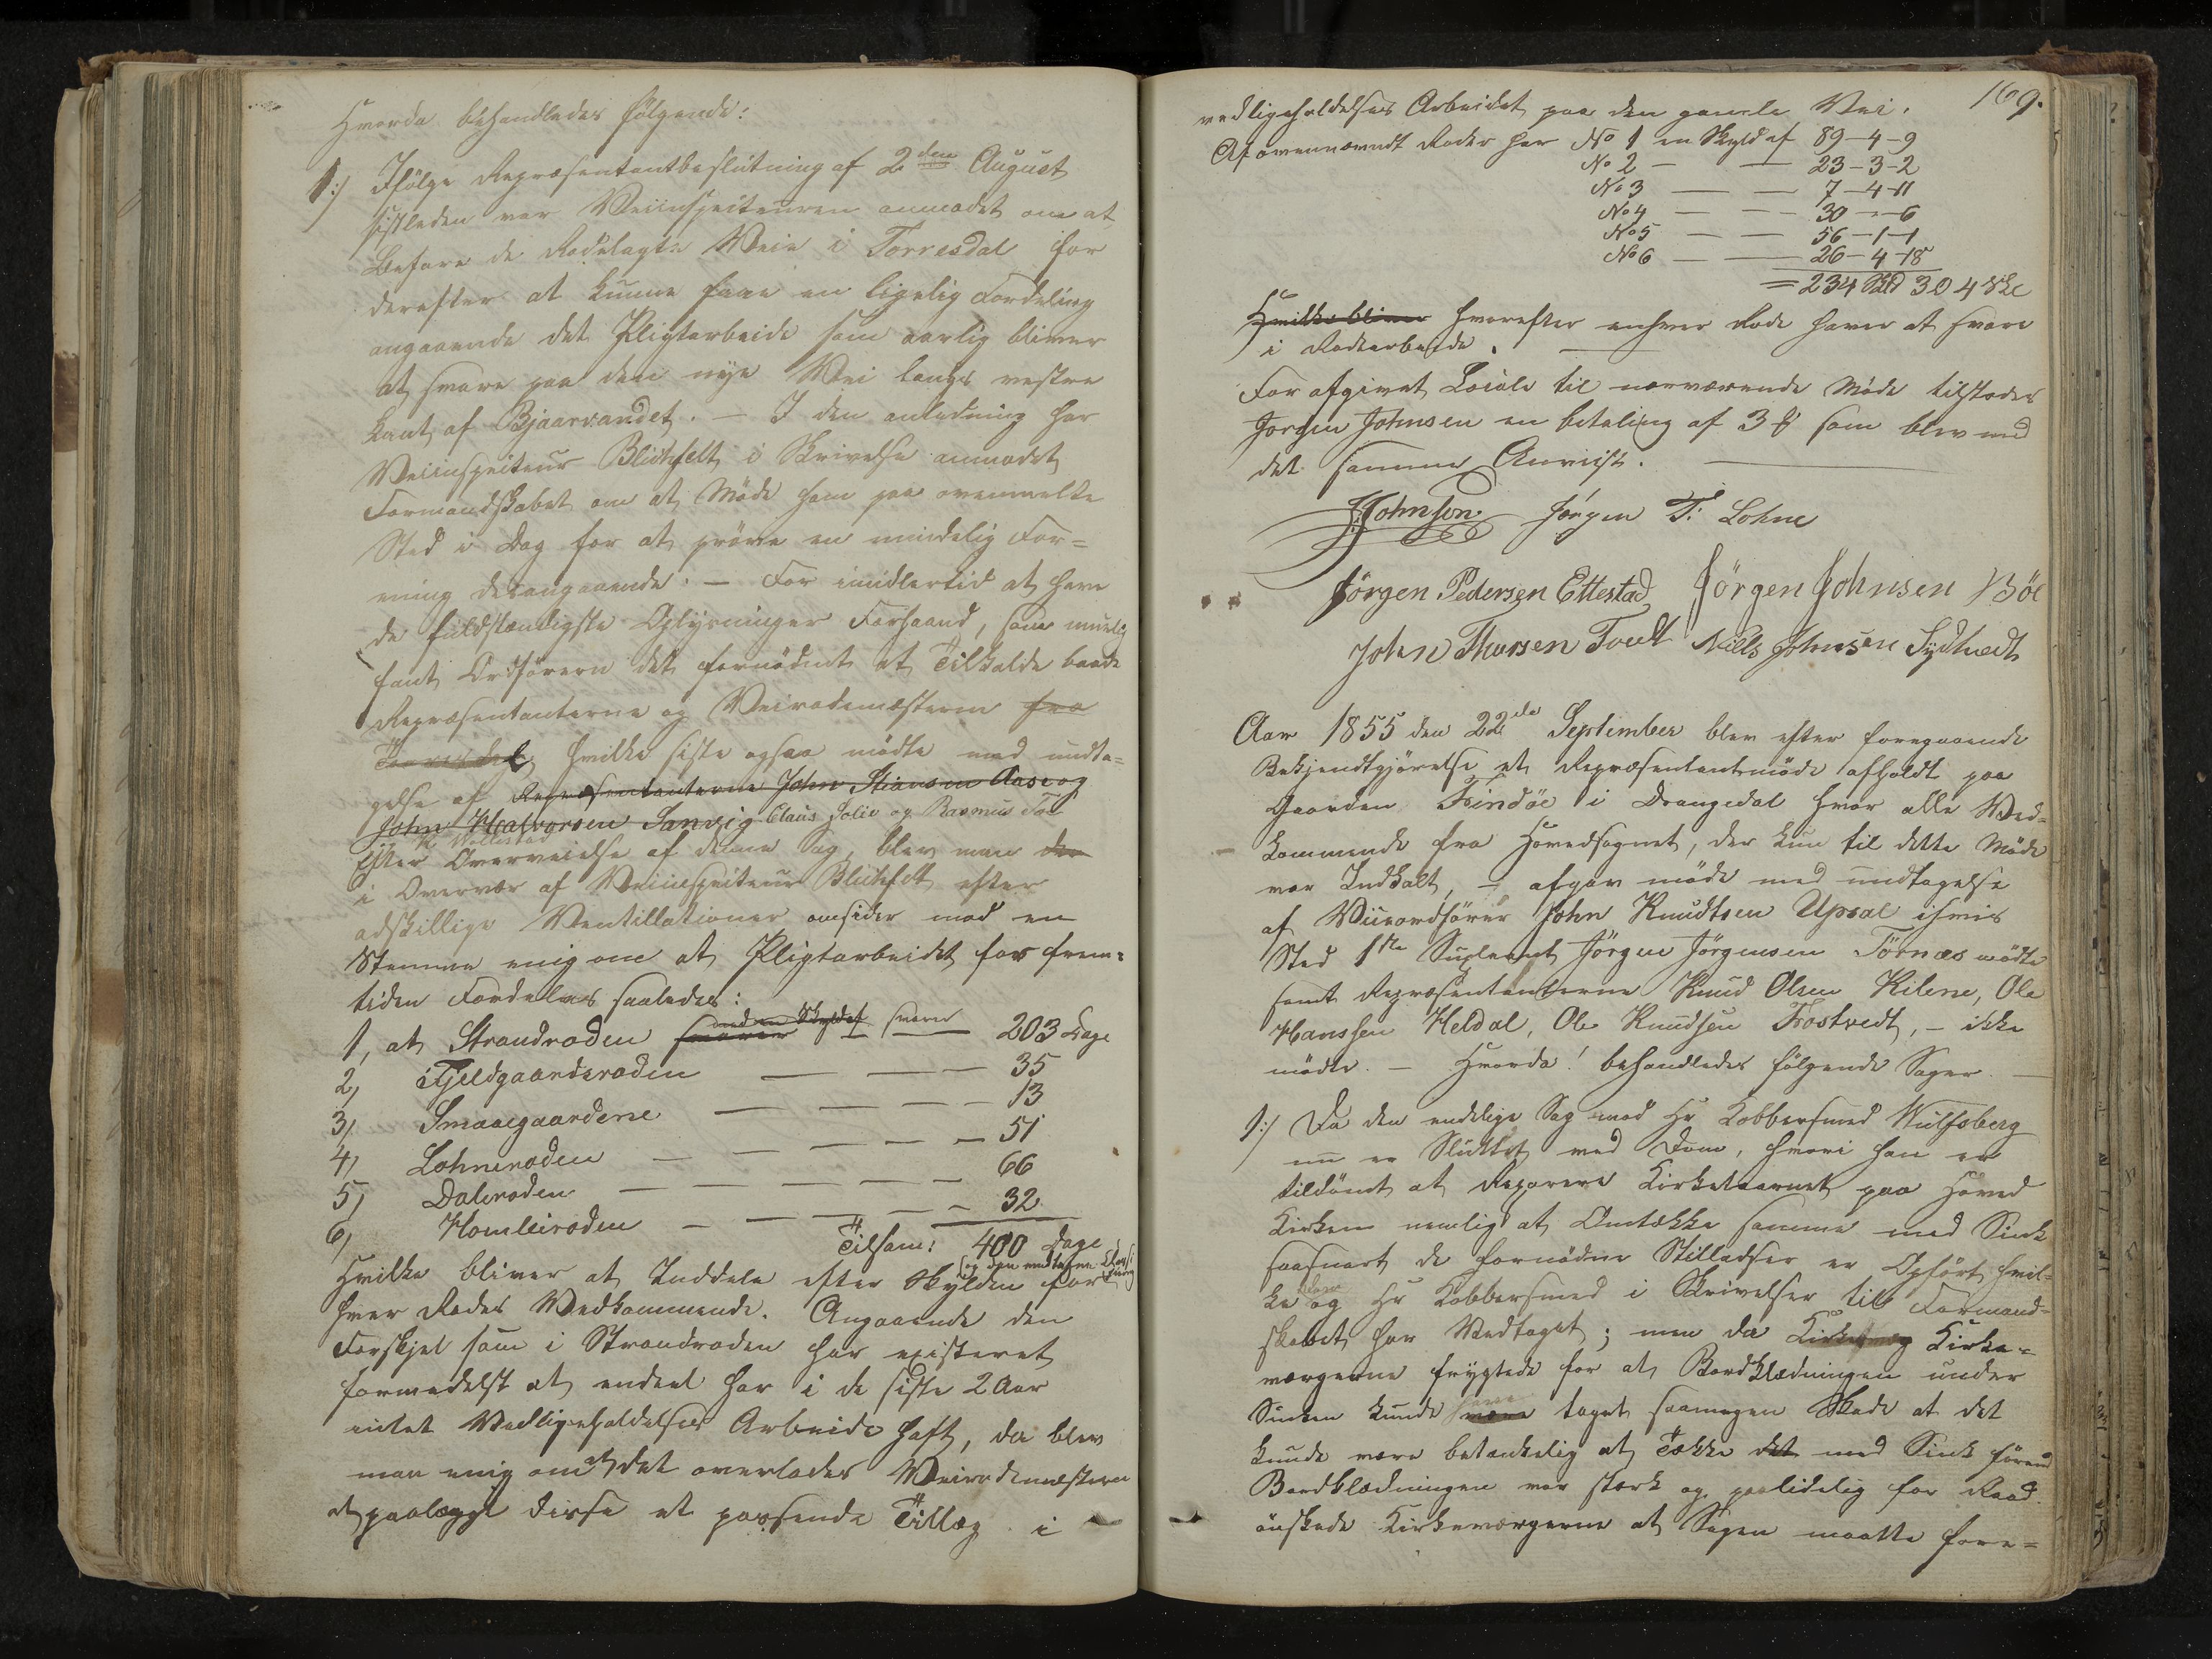 Hvorda behandledes følgende:
1:/ Ifølge Repræsentantbeslutning af 2den August
sistleden var Veiinspecteuren anmodet om at
Befare de Rodelagte Veie i Torresdal for
derefter at kunne faae en ligelig Fordeling
angaaende det Pligtarbeide som aarlig bliver
at svare paa den nye Vei langs vestre
kant af Bjaarvandet. — I den anledning har
Veiinspecteur Blichfelt i Skrivelse anmodet
Formandskabet om at Møde ham paa ovenmelte
Sted i Dag for at prøve en mindelig For=
ening desangaaende. — For imidlertid at have
de fuldstændigste Oplysninger Forhaand, som muelig
fant Ordførern det fornødent at Tilkalde baade
Repræsentanterne og Veirodemæsterne fra
Torresdal, hvilke siste ogsaa mødte med undta=
gelse af Repræsentanterne John Stiansen Aase og
John Halvorsen Sanvig Claus Solie og Rasmus
Efter Overveielse af denne Sag, blev man
i Overvær af Veiinspecteur Blichfelt efter
adskillige Ventillationer omsider med en
Stemme enig om at Pligtarbeidet for frem=
tiden Fordeles saaledes:
1, at Strandroden svarer med en Skyld af svarer 203 Dage
2, Fjeldgaardsroden — — — 35
3, Smaaegaardene — — — — 13
4, Lohneroden — — — — 51
5, Daleroden — — — — — 66
6, Homleiroden — — — — 32
Tilsam: 400 Dage
Hvilke bliver at Inddele efter Skylden for
hver Rodes Vedkommende. Angaaende den
Forskjel som i Strandroden har existeret
formedelst at endeel har i de siste 2 Aar
intet Vedligeholdelses Arbeide haft, da blev
man enig om at det overlades Veirodemæstern
at paalægge disse et passende Tillæg i
169.
vedligeholdelses Arbeidet paa den gamle Vei.
Af ovennævndt Roder har No 1 en Skyld af 89-4-9
No 2 — — 23-3-2
No 3 — — 7-4-11
No 4 — — 30-"-6
No 5 — — 56-1-1
No 6 — — 26-4-18
= 234 Sld 3 O 4 Ske
Hvilke bliver hvorefter enhver Rode haver at svare
i Rodearbeide. —
For afgivet Locale til nærværende Møde tilstodes
Jørgen Johnsen en betaling af 3 som blev med
det samme Anvist. —
J. Johnson. Jørgen T: Lohne
Jörgen Pedersen Ettestad Jörgen Johnsen Böe
John Thorsen Tvedt Niells Johnsen Sydtvedt
Aar 1855 den 22de September blev efter foregaaende
Bekjendtgjørelse et Repræsentantmøde afholdt paa
Gaarden Trindöe i Drangedal hvor alle Ved=
kommende fra Hovedsognet, der kun til dette Møde
var Indkalt, — afgav møde med undtagelse
af Viiceordfører John Knudtsen Upsal ihvis
Sted 1ste Supleant Jörgen Jörgensen Törnæs mødte
samt Repræsentanterne Knud Olsen Kilene, Ole
Hanssen Heldal, Ole Knudsen Trostvedt, — ikke
mødte. — Hvorda! behandledes følgende Sager. —
1:/ Da den endelige Sag mod Hr Kobbersmed Wulfsberg
nu er Sluttet med Dom, hvori han er
tildømt at Reparere Kirketaarnet paa Hoved
Kirken nemlig at Omtække samme med Sink
saasnart de fornødne Stilladser er Opført hvil=
ke og Hr Kobbersmed i Skrivelser til Formand=
skabet har Vedtaget; men da Kirkeværg Kirke=
værgerne frygtede for at Bordklædningen under
Sinken kunde være have taget saamegen Skade at det
kunde være betænkelig at Tække det med Sink førend
Bordklædningen var stærk og paalidelig for Raad
ønskede Kirkeværgerne at Sagen maatte fore=